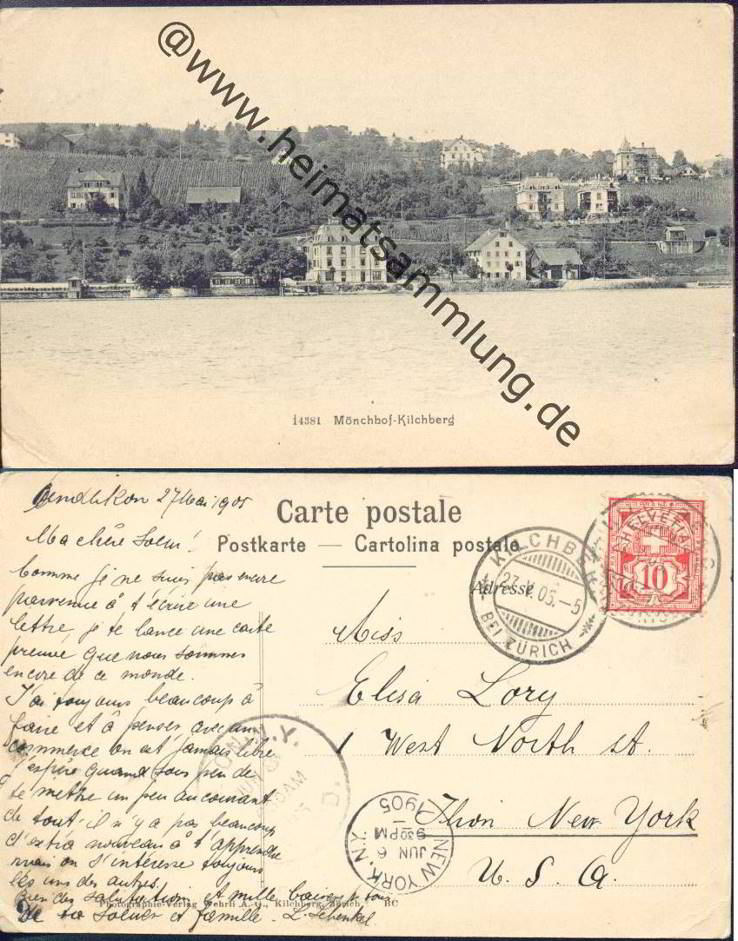 @www.heimatsammlung.de
14381 Mönchhof-Kilchberg
Carte postale
Postkarte — Cartolina postale
Adresse
KILCHBERG
27.V.05.-5
BEI ZÜRICH
HELVETIA
10
27 Mai 1905
Ma chère Soeur!
Comme je ne suis pas encore
parvenue à t'écrire une
lettre, je te lance une carte
preuve que nous sommes
encore de ce monde.
J'ai toujours beaucoup à
faire et à penser, avec un
commerce on est jamais libre
j'espère quand sous peu de
te mettre un peu au courant
de tout, il n'y a pas beaucoup
d'extra nouveau à t'apprendre
mais on s'intéresse toujours
les uns des autres.
Bien des salutations et mille baisers
de ta soeur et famille. L. Schenkel
Miss
Elisa Lory
1 West North st.
Ilion New York
U. S. A.
NEW YORK, N.Y.
JUN 6
930PM
1905
N.Y.
JUN
AM
Photographie-Verlag Wehrli A.-G., Kilchberg, Zürich. BC